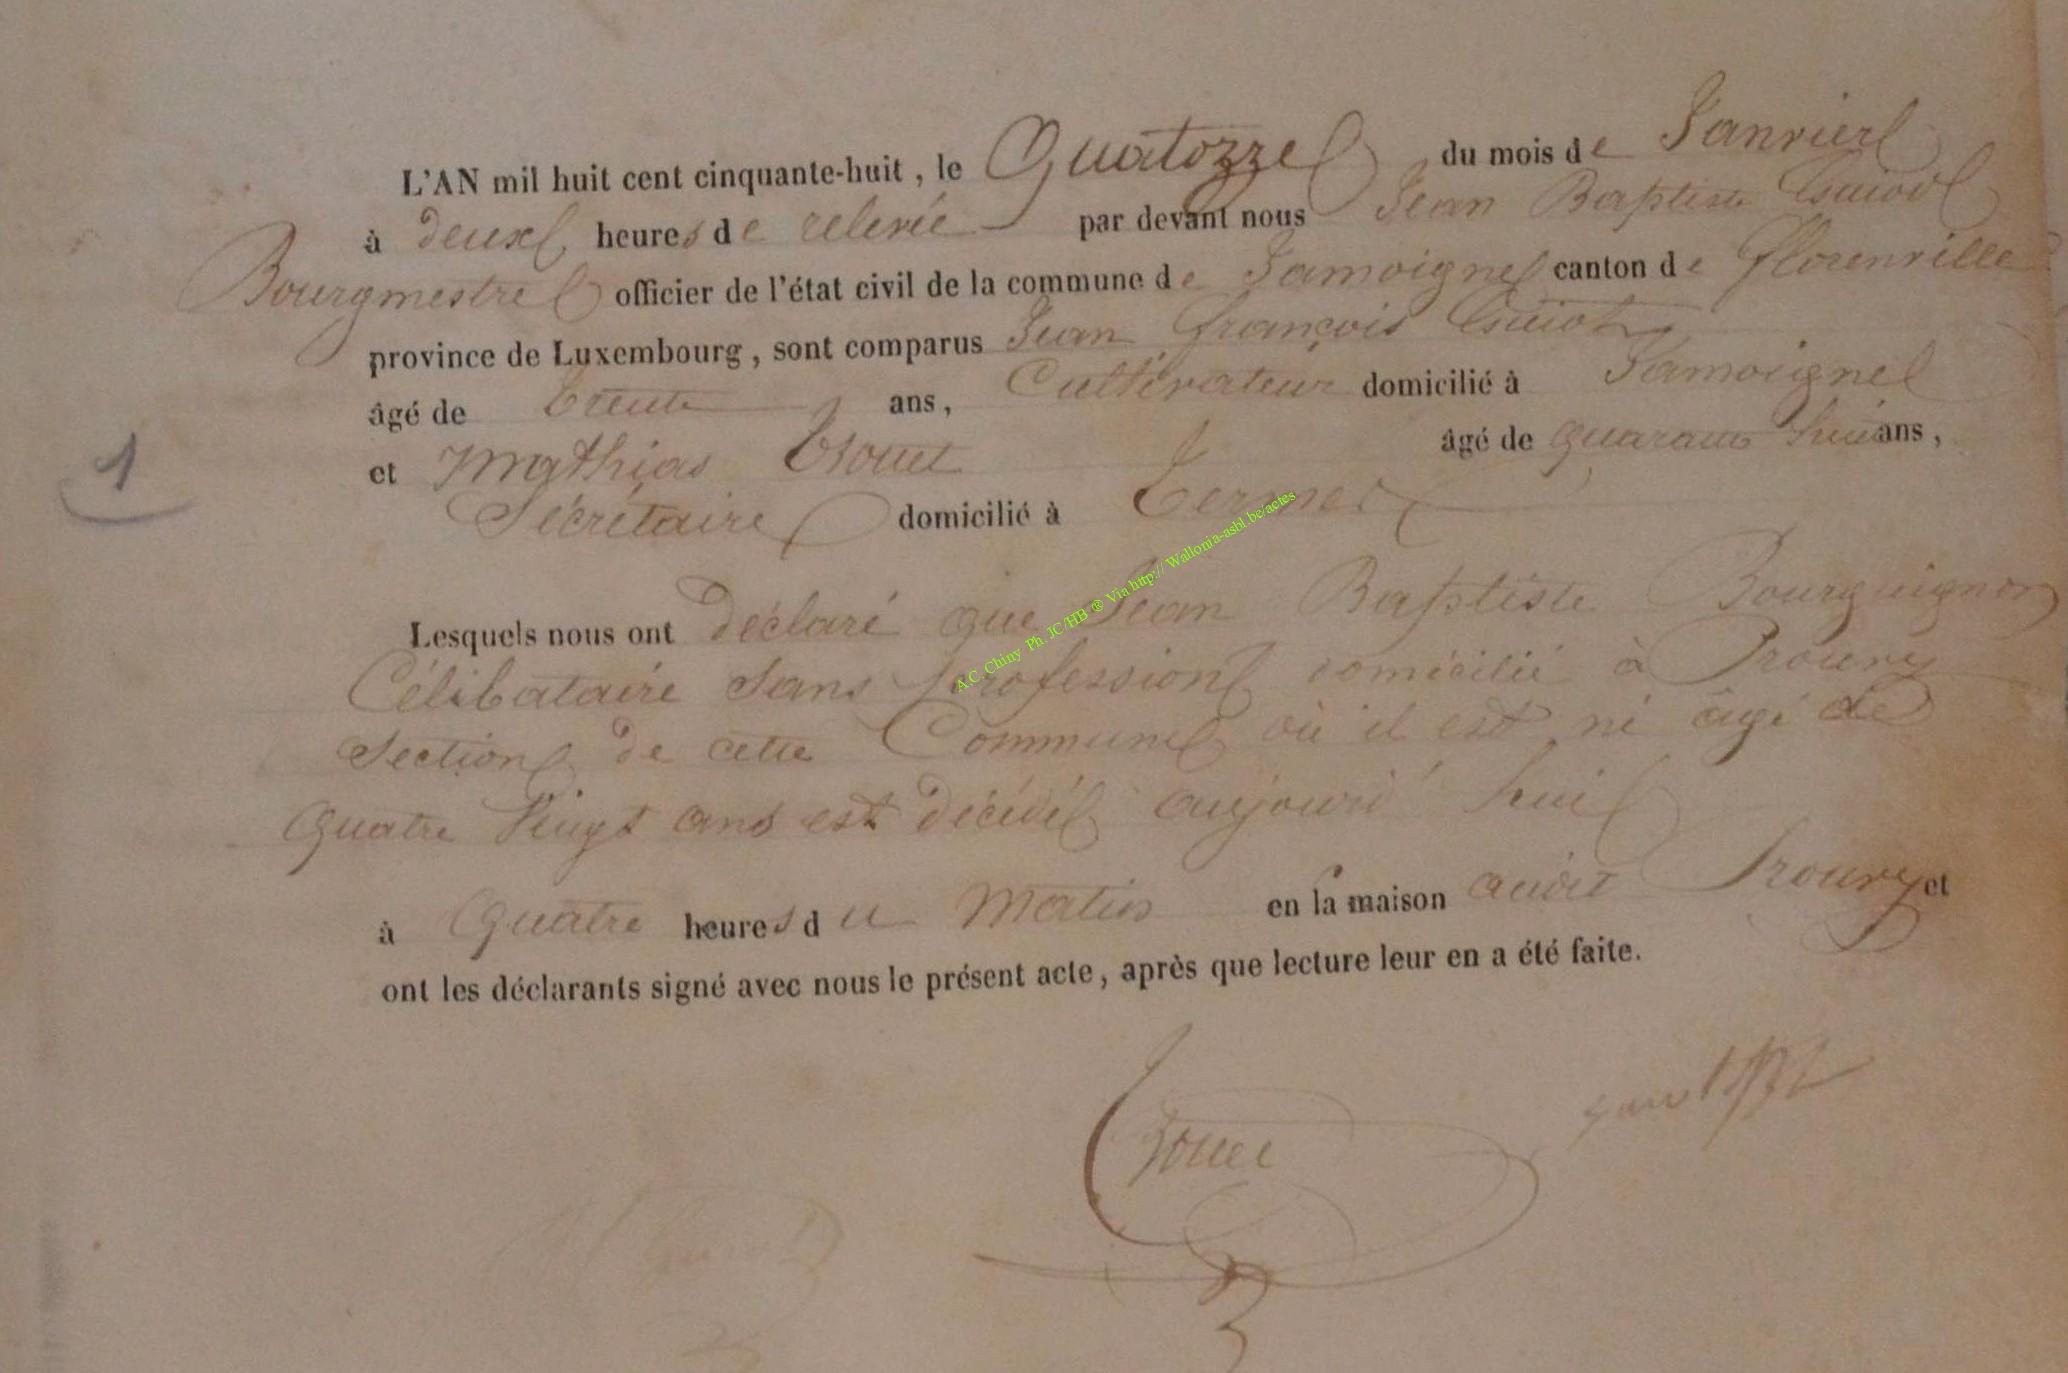 L'AN mil huit cent cinquante-huit, le Quatozze du mois de Janvier
à deux heures de relevée par devant nous Jean Baptiste Guiot
Bourgmestre officier de l'état civil de la commune de Jamoigne canton de florenville
province de Luxembourg, sont comparus Jean françois Guiot
âgé de trente ans, Cultivateur domicilié à Jamoigne
et Mathias âgé de quarante huit ans,
1
Sécrétaire domicilié à Termes
Lesquels nous ont déclaré que Jean Baptiste Bourguignon
Célibataire sans profession domicilié à Prouvy
section de cette Commune où il est né âgé de
quatre Vingt ans est décédé aujourd'hui
à Quatre heures du Matin en la maison audit Prouvy et
ont les déclarants signé avec nous le présent acte, après que lecture leur en a été faite.
A.C. Chiny Ph. JC/HB ® Via http:// Wallonia-asbl.be/actes